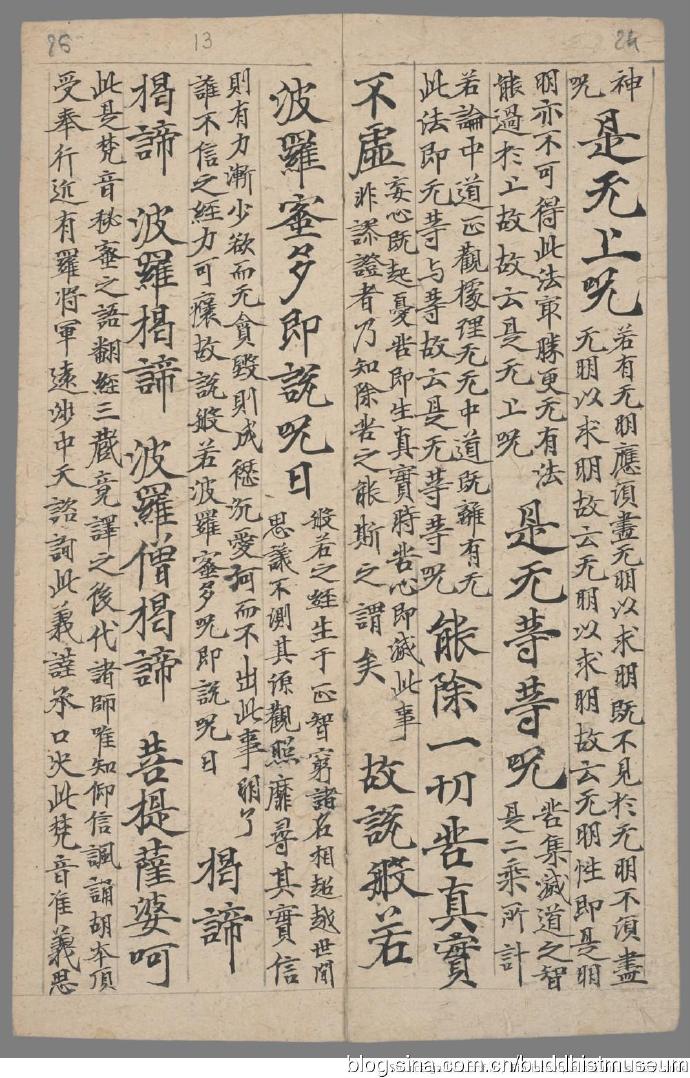 25 13 24
神
呪
是无上呪
若有无明應須盡无明以求明既不見於无明不須盡
无明以求明故云无明以求明故云无明性即是明
明亦不可得此法最勝更无有法
能過於上故故云是无上呪
是无等等呪
苦集滅道之智
是二乘所計
若論中道正觀據理无无中道既離有无
此法即无等与等故云是无等等呪
能除一切苦真實
不虛
妄心既起憂苦即生真實時苦心即滅此事
非謬證者乃知除苦之能斯之謂矣
故說般若
波羅蜜多即說呪曰
般若之經生于正智窮諸名相超越世間
思議不測其源觀照靡尋其實信
則有力漸少欲而无貪毀則成沉愛河而不出此事明了
誰不信之經力可穰故說般若波羅蜜多呪即說呪曰
揭諦
揭諦 波羅揭諦 波羅僧揭諦 菩提薩婆呵
此是梵音秘蜜之語翻經三藏竟譯之後代諸師唯知仰信諷誦胡本頂
受奉行近有羅將軍遠涉中天諮詢此義謹承口決此梵音准義思
blog.sina.com.cn/buddhistmuseum